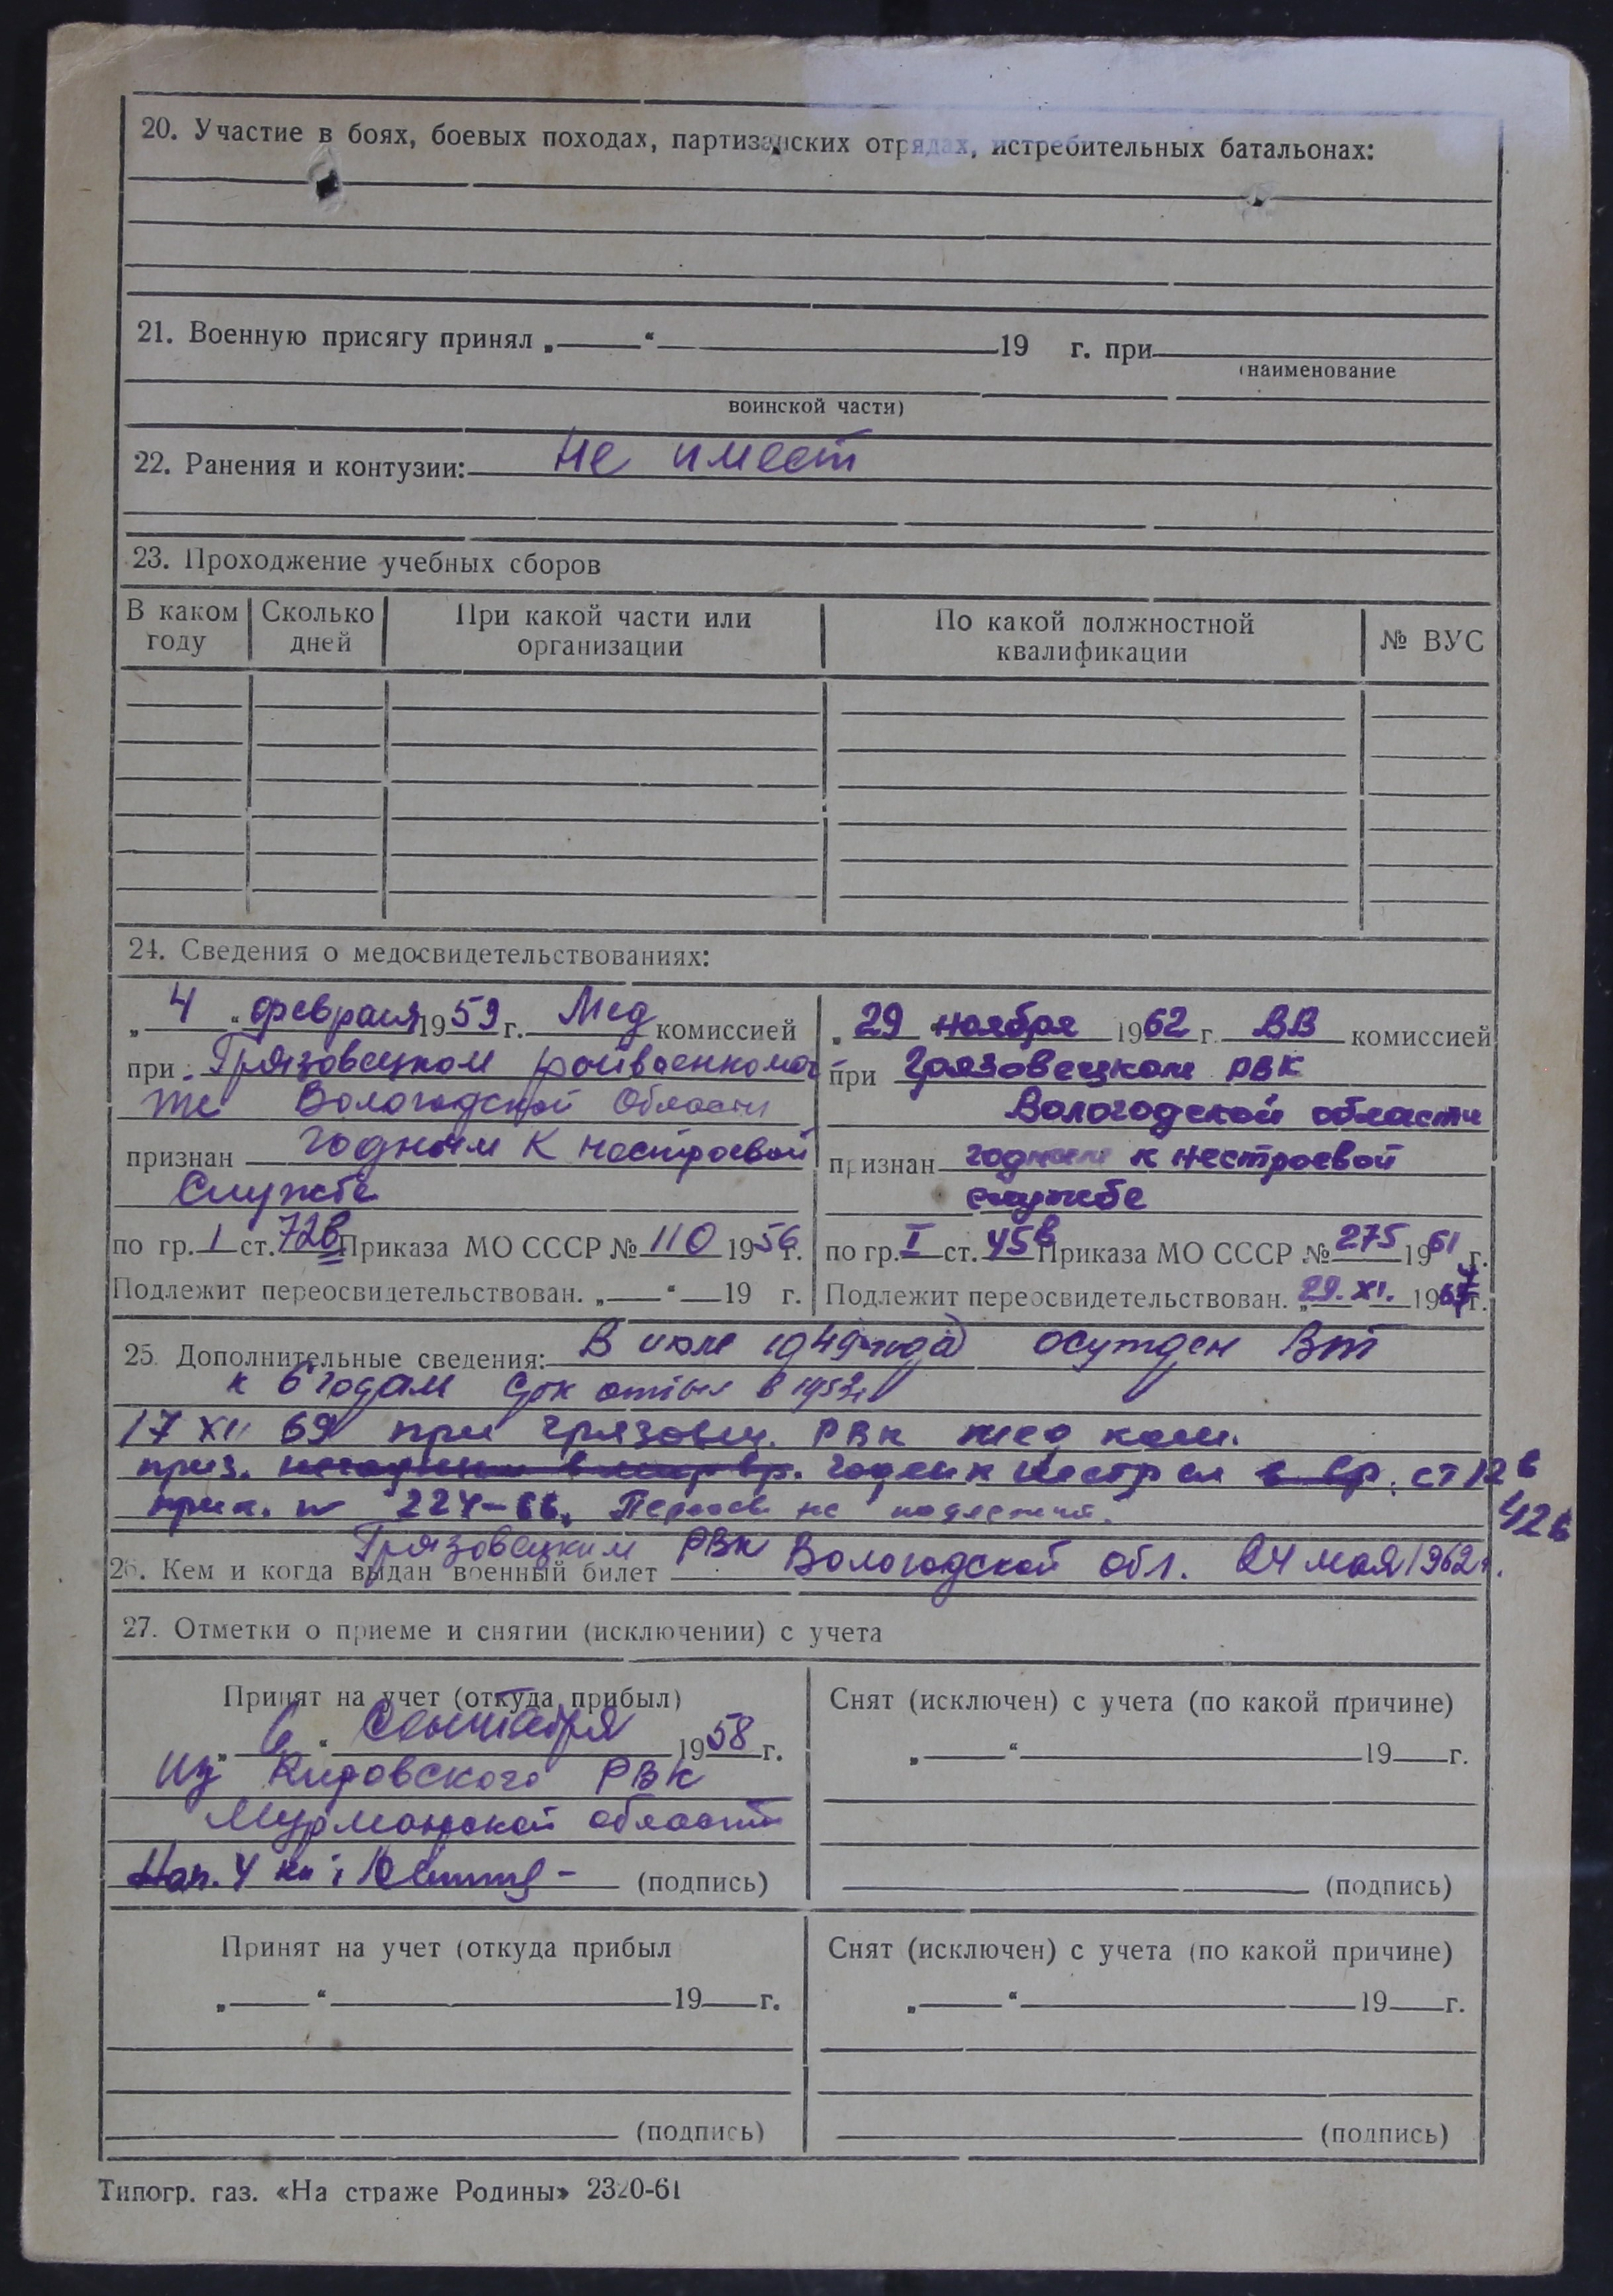 20. Участие в боях, боевых походах, партизанских отрядах, истребительных батальонах:
21. Военную присягу принял „ “ 19 г. при
(наименование
воинской части)
22. Ранения и контузии: Не имеет
23. Прохождение учебных сборов
В каком году Сколько дней При какой части или организации По какой должностной квалификации № ВУС
24. Сведения о медосвидетельствованиях:
„ 4 “ февраля 1959 г. Мед комиссией
при Грязовецком райвоенкома
те Вологодской области
признан годным к нестроевой
службе
по гр. 1 ст. 72в Приказа МО СССР № 110 1956 г.
Подлежит переосвидетельствован. „ “ 19 г.
„ 29 ноября 1962 г. ВВ комиссией
при Грязовецком РВК
Вологодской области
признан годным к нестроевой
службе
по гр. I ст. 45в Приказа МО СССР № 275 1961 г.
Подлежит переосвидетельствован. „ 29. XI. 1967 г.
25. Дополнительные сведения: В июле 1949 года осужден ВТ
к 6 годам Срок отбыл в 1952
17 XII 69 при Грязовец. РВК мед ком.
приз. годен к нестр сл в вр. ст 12в
42в
прик. № 224-66. Переосв не подлежит.
26. Кем и когда выдан военный билет Грязовецким РВК Вологодской обл. 24 мая 1962 г.
27. Отметки о приеме и снятии (исключении) с учета
Принят на учет (откуда прибыл)
„ 6 “ Сентября 1958 г.
из Кировского РВК
Мурманской области
Нач. 4 (подпись)
Снят (исключен) с учета (по какой причине)
„ “ 19 г.
(подпись)
Принят на учет (откуда прибыл
„ “ 19 г.
(подпись)
Снят (исключен) с учета (по какой причине)
„ “ 19 г.
(подпись)
Типогр. газ. «На страже Родины» 2320-61